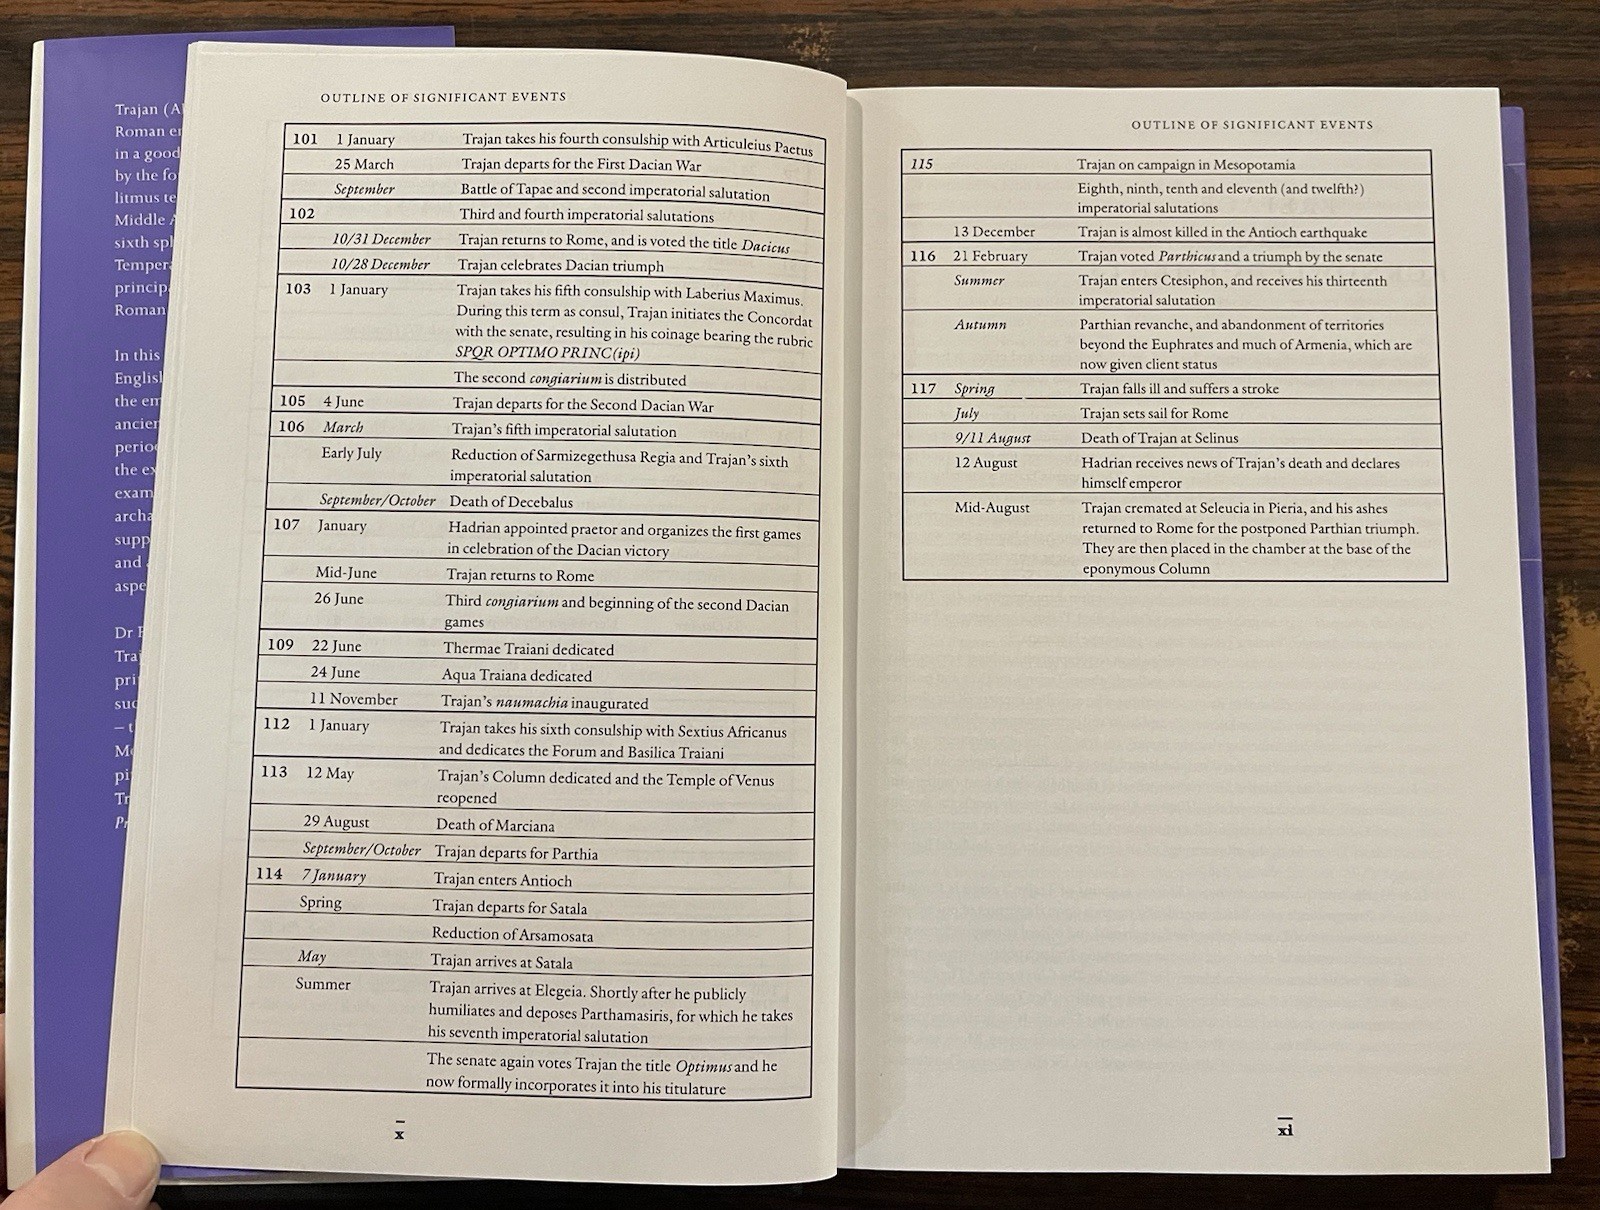 Trajan (Al
Roman en
in a good
by the fo
litmus te
Middle A
sixth spl
Tempera
princip
Roman
In this
English
the em
ancien
perio
the ex
exam
archa
supp
and
aspe
Dr F
Traj
pri
suc
– t
Me
pi
Tr
Pr
OUTLINE OF SIGNIFICANT EVENTS
101 1 January Trajan takes his fourth consulship with Articuleius Paetus
25 March Trajan departs for the First Dacian War
September Battle of Tapae and second imperatorial salutation
102 Third and fourth imperatorial salutations
10/31 December Trajan returns to Rome, and is voted the title Dacicus
10/28 December Trajan celebrates Dacian triumph
103 1 January Trajan takes his fifth consulship with Laberius Maximus.
During this term as consul, Trajan initiates the Concordat
with the senate, resulting in his coinage bearing the rubric
SPQR OPTIMO PRINC(ipi)
The second congiarium is distributed
105 4 June Trajan departs for the Second Dacian War
106 March Trajan's fifth imperatorial salutation
Early July Reduction of Sarmizegethusa Regia and Trajan's sixth
imperatorial salutation
September/October Death of Decebalus
107 January Hadrian appointed praetor and organizes the first games
in celebration of the Dacian victory
Mid-June Trajan returns to Rome
26 June Third congiarium and beginning of the second Dacian
games
109 22 June Thermae Traiani dedicated
24 June Aqua Traiana dedicated
11 November Trajan's naumachia inaugurated
112 1 January Trajan takes his sixth consulship with Sextius Africanus
and dedicates the Forum and Basilica Traiani
113 12 May Trajan's Column dedicated and the Temple of Venus
reopened
29 August Death of Marciana
September/October Trajan departs for Parthia
114 7 January Trajan enters Antioch
Spring Trajan departs for Satala
Reduction of Arsamosata
May Trajan arrives at Satala
Summer Trajan arrives at Elegeia. Shortly after he publicly
humiliates and deposes Parthamasiris, for which he takes
his seventh imperatorial salutation
The senate again votes Trajan the title Optimus and he
now formally incorporates it into his titulature
x
OUTLINE OF SIGNIFICANT EVENTS
115 Trajan on campaign in Mesopotamia
Eighth, ninth, tenth and eleventh (and twelfth?)
imperatorial salutations
13 December Trajan is almost killed in the Antioch earthquake
116 21 February Trajan voted Parthicus and a triumph by the senate
Summer Trajan enters Ctesiphon, and receives his thirteenth
imperatorial salutation
Autumn Parthian revanche, and abandonment of territories
beyond the Euphrates and much of Armenia, which are
now given client status
117 Spring Trajan falls ill and suffers a stroke
July Trajan sets sail for Rome
9/11 August Death of Trajan at Selinus
12 August Hadrian receives news of Trajan's death and declares
himself emperor
Mid-August Trajan cremated at Seleucia in Pieria, and his ashes
returned to Rome for the postponed Parthian triumph.
They are then placed in the chamber at the base of the
eponymous Column
xi